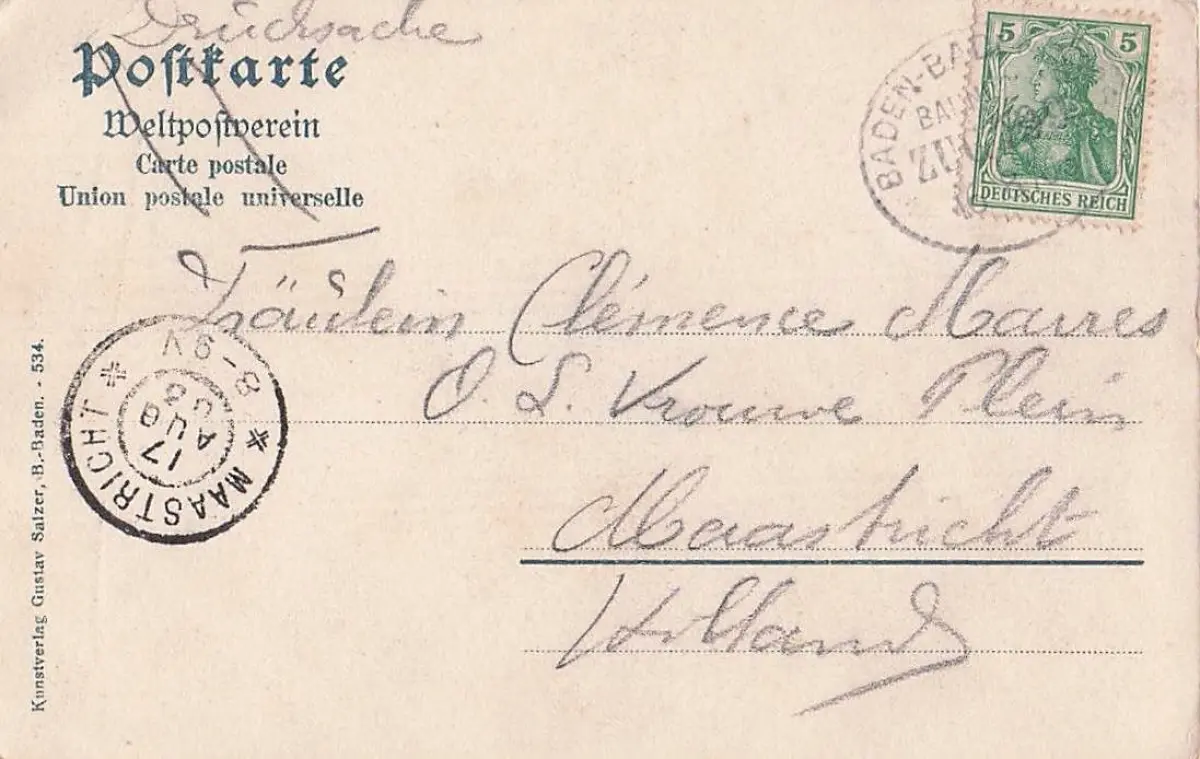 Drucksache
Postkarte
Weltpostverein
Carte postale
Union postale universelle
5 5
DEUTSCHES REICH
BADEN-BAD
ZUG
Fräulein Clémence Maires
O. L. Vrouwe Plein
Maastricht
Holland
MAASTRICHT
8-9V
17
AUG
Kunstverlag Gustav Salzer, B.-Baden. - 534.